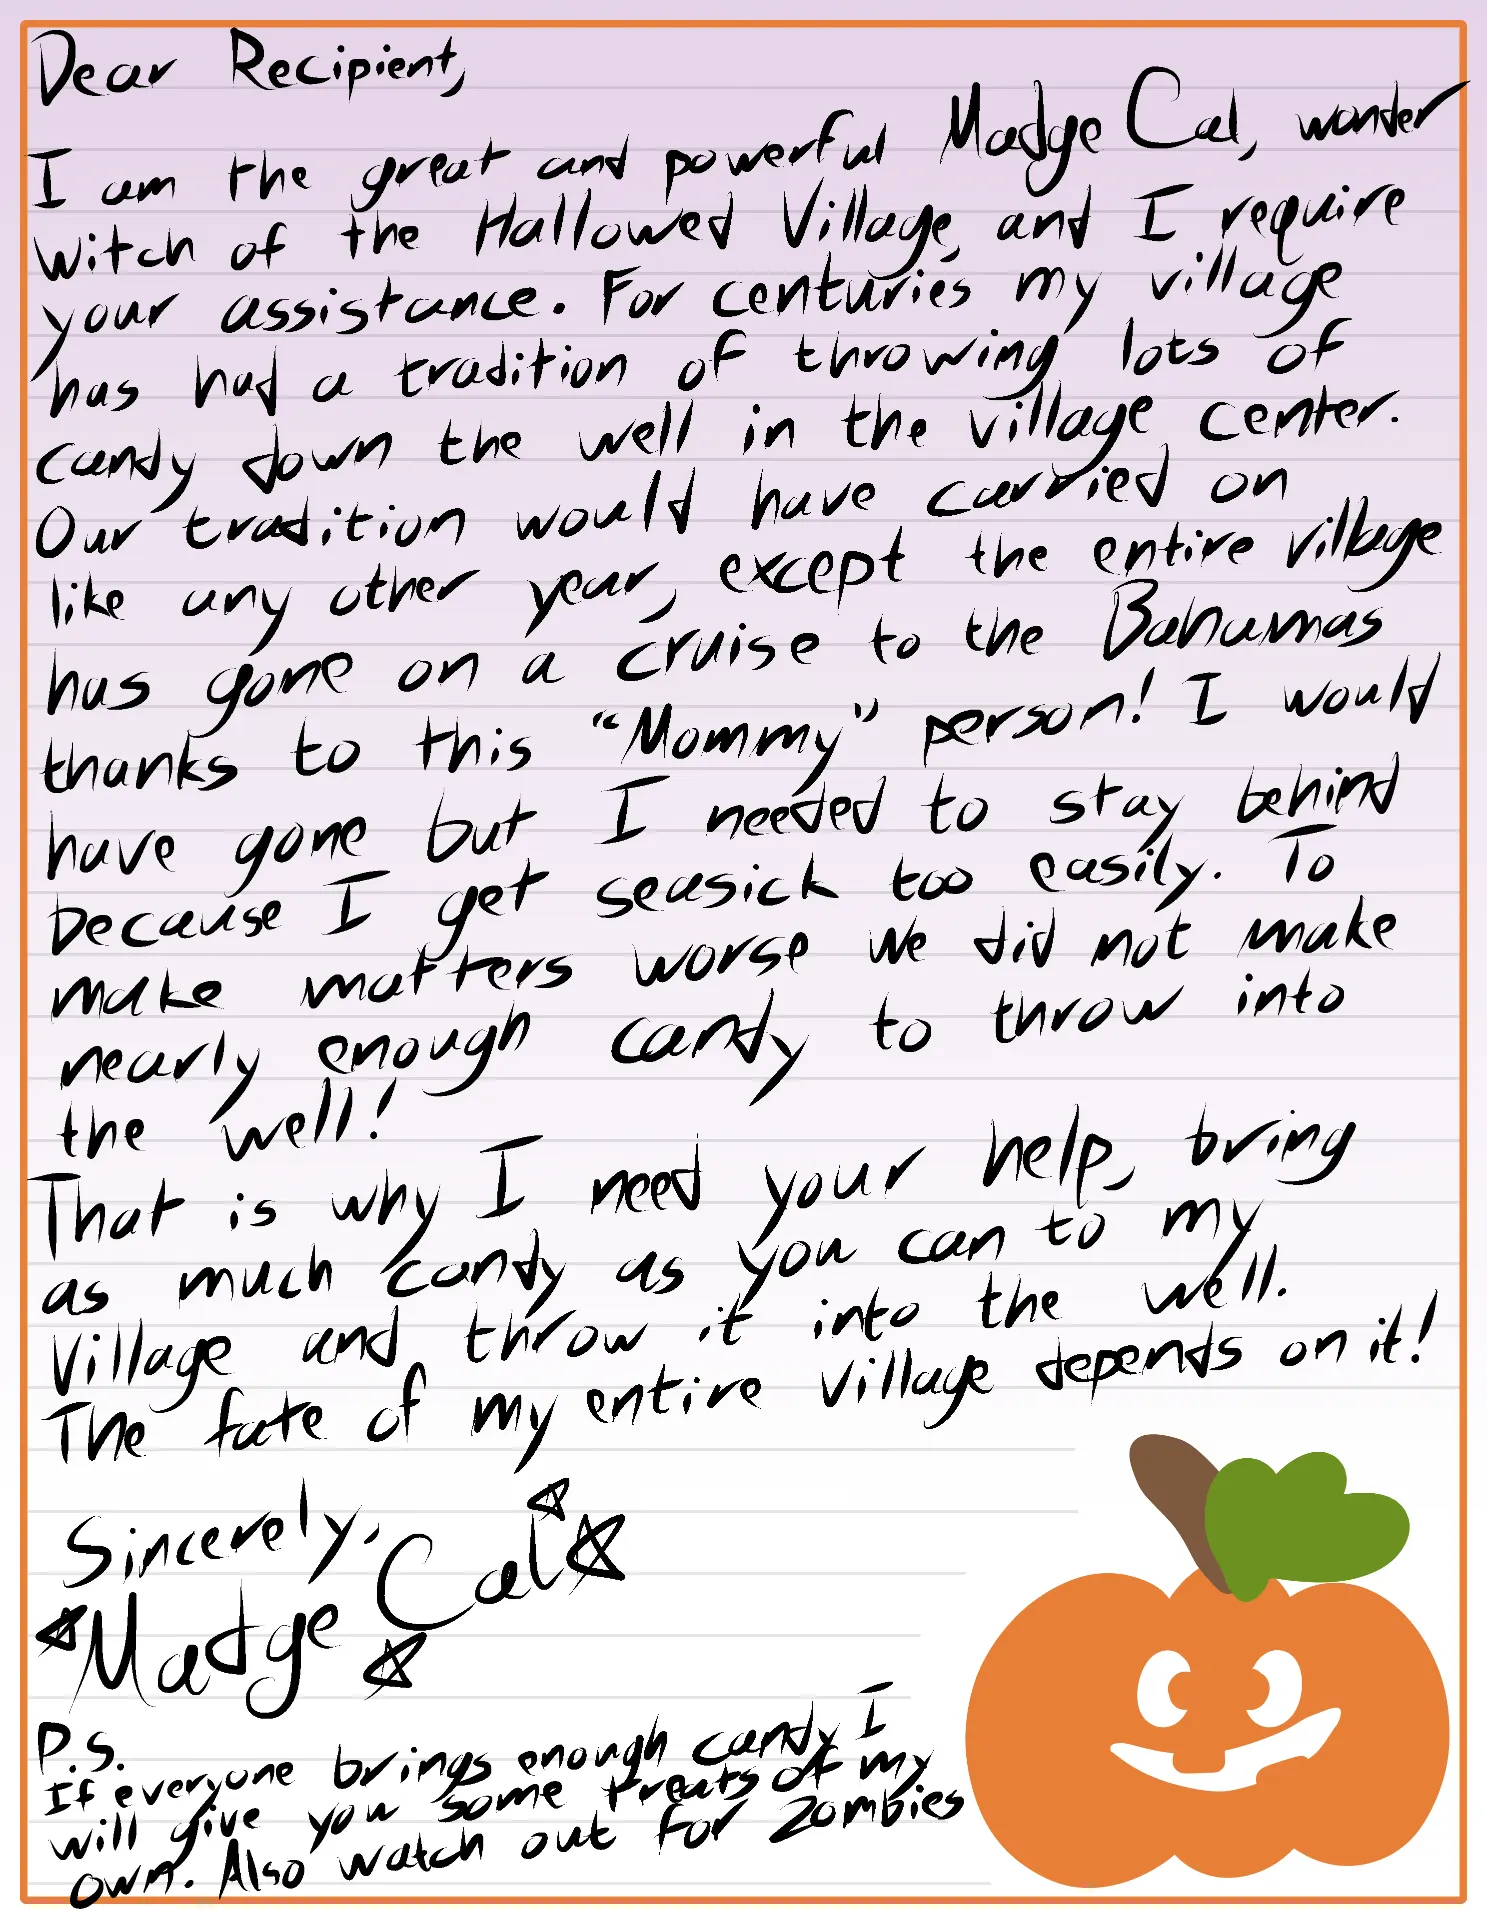 Dear Recipient,
I am the great and powerful Madge Cal, wonder
witch of the Hallowed Village, and I require
your assistance. For centuries my village
has had a tradition of throwing lots of
candy down the well in the village center.
Our tradition would have carried on
like any other year, except the entire village
has gone on a cruise to the Bahamas
thanks to this "Mommy" person! I would
have gone but I needed to stay behind
because I get seasick too easily. To
make matters worse we did not make
nearly enough candy to throw into
the well!
That is why I need your help, bring
as much candy as you can to my
village and throw it into the well.
The fate of my entire village depends on it!
Sincerely,
Madge Cal
P.S.
If everyone brings enough candy I
will give you some treats of my
own. Also watch out for zombies